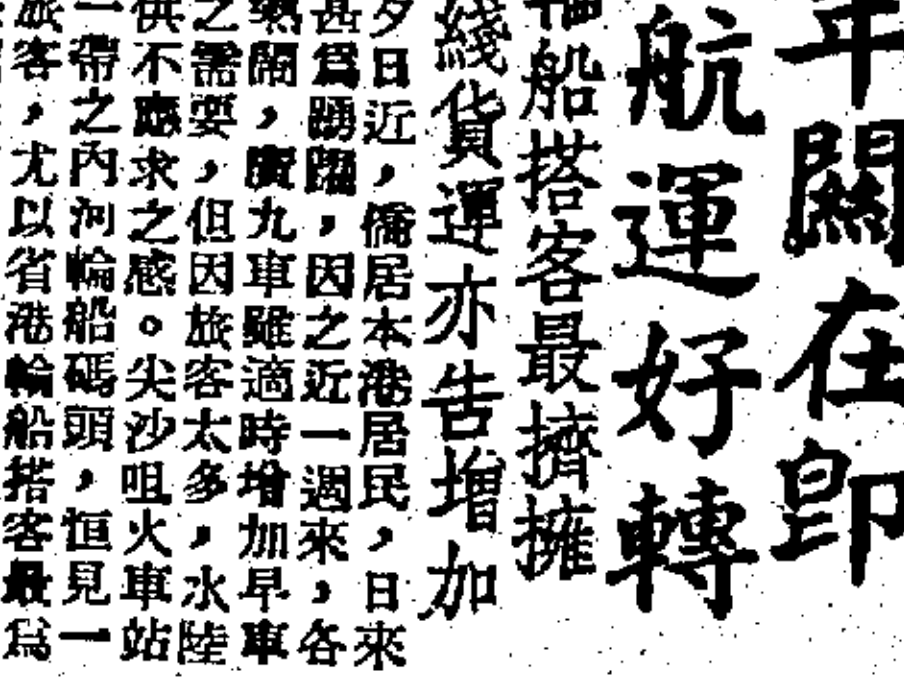 年關在即
航運好轉
輪船搭客最擠擁
綫貨運亦告增加
夕日近，僑居本港居民，日來
甚爲踴躍，因之近一週來，各
熱鬧，廣九車雖適時增加早車
之需要，但因旅客太多，水陸
供不應求之感。尖沙咀火車站
一帶之內河輪船碼頭，恒見一
旅客，尤以省港輪船搭客最爲